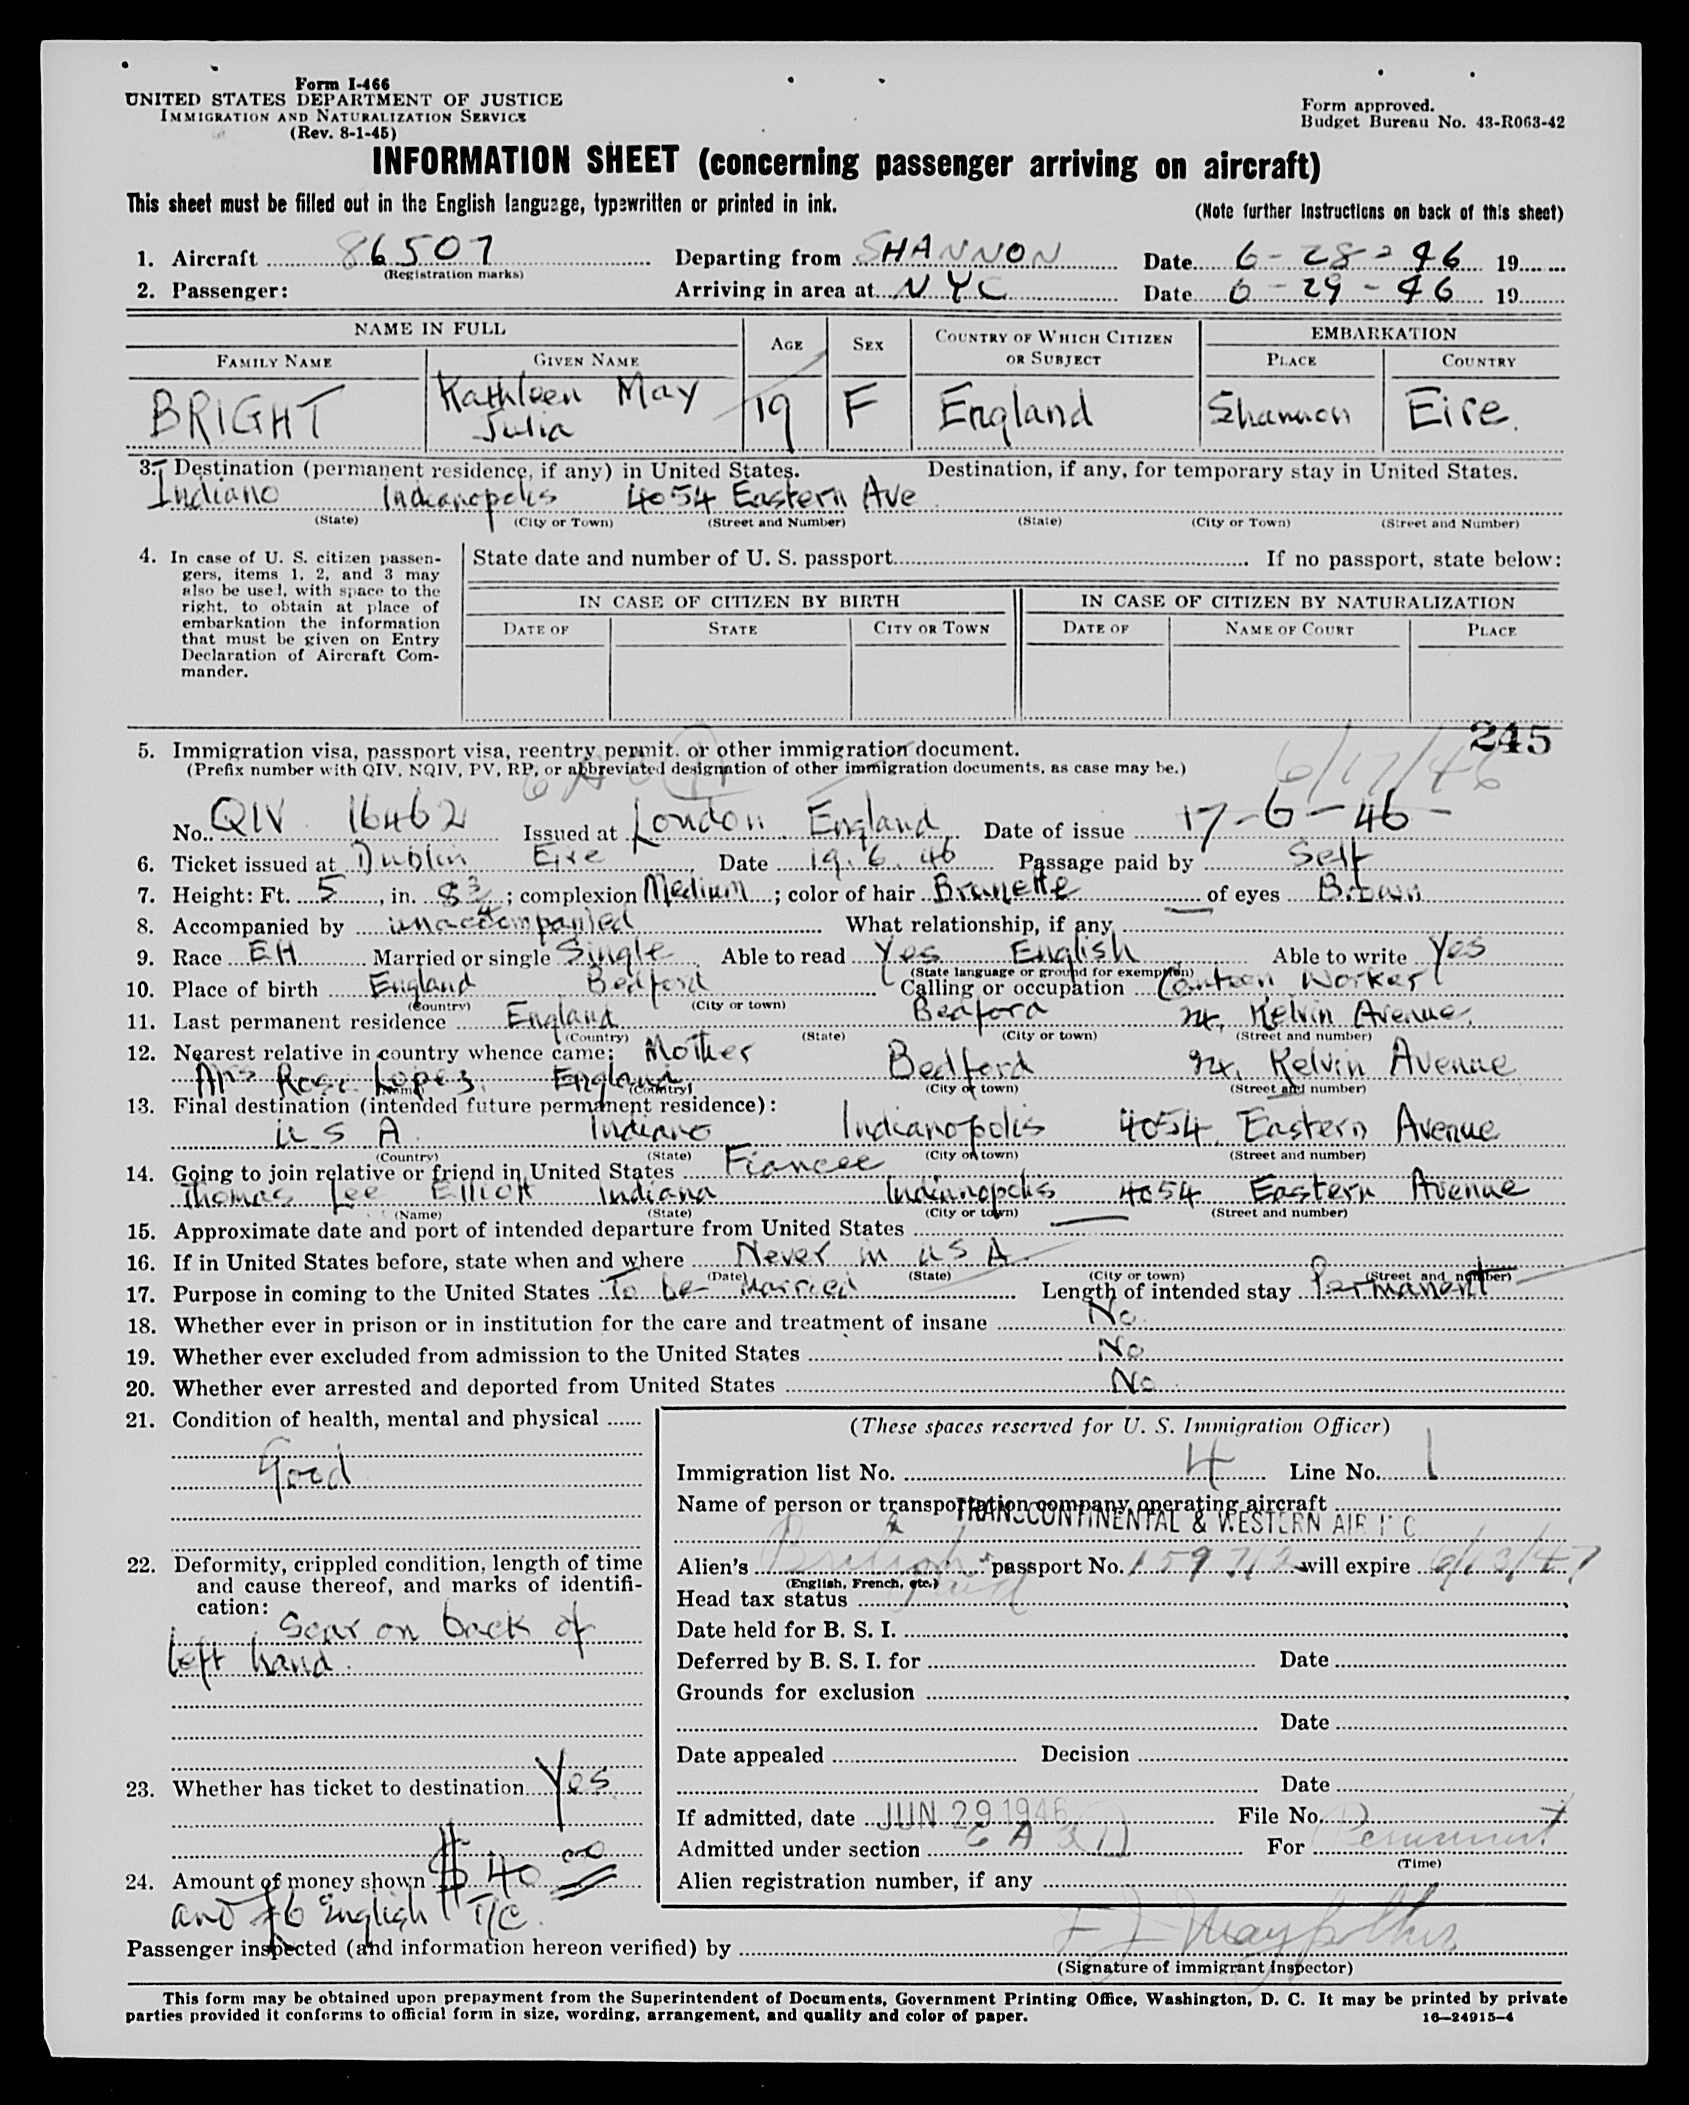 Form I-466
UNITED STATES DEPARTMENT OF JUSTICE
IMMIGRATION AND NATURALIZATION SERVICE
(Rev. 8-1-45)
Form approved.
Budget Bureau No. 43-R063-42
INFORMATION SHEET (concerning passenger arriving on aircraft)
This sheet must be filled out in the English language, typewritten or printed in ink.
(Note further instructions on back of this sheet)
1. Aircraft 86507 Departing from SHANNON Date 6-28-46 19
(Registration marks)
2. Passenger: Arriving in area at NYC Date 6-29-46 19
NAME IN FULL AGE SEX COUNTRY OF WHICH CITIZEN OR SUBJECT EMBARKATION
FAMILY NAME GIVEN NAME PLACE COUNTRY
BRIGHT Kathleen May Julia 19 F England Shannon Eire.
3. Destination (permanent residence, if any) in United States. Destination, if any, for temporary stay in United States.
Indiano Indianopolis 4054 Eastern Ave
(State) (City or Town) (Street and Number) (State) (City or Town) (Street and Number)
4. In case of U. S. citizen passen-
gers, items 1, 2, and 3 may
also be used, with space to the
right, to obtain at place of
embarkation the information
that must be given on Entry
Declaration of Aircraft Com-
mander.
State date and number of U. S. passport If no passport, state below:
IN CASE OF CITIZEN BY BIRTH IN CASE OF CITIZEN BY NATURALIZATION
DATE OF STATE CITY OR TOWN DATE OF NAME OF COURT PLACE
245
5. Immigration visa, passport visa, reentry permit, or other immigration document.
(Prefix number with QIV, NQIV, PV, RP, or abbreviated designation of other immigration documents, as case may be.)
6/17/46
No. QIV 16462 Issued at London England Date of issue 17-6-46-
6. Ticket issued at Dublin Eire Date 19.6.46 Passage paid by Self
7. Height: Ft. 5, in. 8 3/4; complexion Medium; color of hair Brunette of eyes Brown
8. Accompanied by unaccompanied What relationship, if any
9. Race EH Married or single Single Able to read Yes English Able to write Yes
(State language or ground for exemption)
10. Place of birth England Bedford Calling or occupation Canteen Worker
(Country) (City or town)
11. Last permanent residence England Bedford 24, Kelvin Avenue.
(Country) (State) (City or town) (Street and number)
12. Nearest relative in country whence came; Mother Bedford 24. Kelvin Avenue
Mrs Rose Lopes. England
(Name) (Country) (City or town) (Street and number)
13. Final destination (intended future permanent residence):
U S A Indiano Indianopolis 4054 Eastern Avenue
(Country) (State) (City or town) (Street and number)
14. Going to join relative or friend in United States Fiancee
Thomas Lee Elliott Indiana Indianapolis 4054 Eastern Avenue
(Name) (State) (City or town) (Street and number)
15. Approximate date and port of intended departure from United States
16. If in United States before, state when and where Never in U S A.
(Date) (State) (City or town) (Street and number)
17. Purpose in coming to the United States To be Married Length of intended stay Permanent
18. Whether ever in prison or in institution for the care and treatment of insane No
19. Whether ever excluded from admission to the United States No
20. Whether ever arrested and deported from United States No
21. Condition of health, mental and physical
Good
22. Deformity, crippled condition, length of time
and cause thereof, and marks of identifi-
cation:
Scar on back of
left hand.
23. Whether has ticket to destination Yes
24. Amount of money shown $40 00
and £6 English T/C.
(These spaces reserved for U. S. Immigration Officer)
Immigration list No. 4 Line No. 1
Name of person or transportation company operating aircraft
TRANSCONTINENTAL & WESTERN AIR INC
Alien's British passport No. 159712 will expire 6/13/47
(English, French, etc.)
Head tax status Paid
Date held for B. S. I.
Deferred by B. S. I. for Date
Grounds for exclusion
Date
Date appealed Decision
Date
If admitted, date JUN 29 1946 File No.
Admitted under section 6 A 3(1) For Permanent
(Time)
Alien registration number, if any
Passenger inspected (and information hereon verified) by
(Signature of immigrant inspector)
This form may be obtained upon prepayment from the Superintendent of Documents, Government Printing Office, Washington, D. C. It may be printed by private
parties provided it conforms to official form in size, wording, arrangement, and quality and color of paper.
16—24915-4